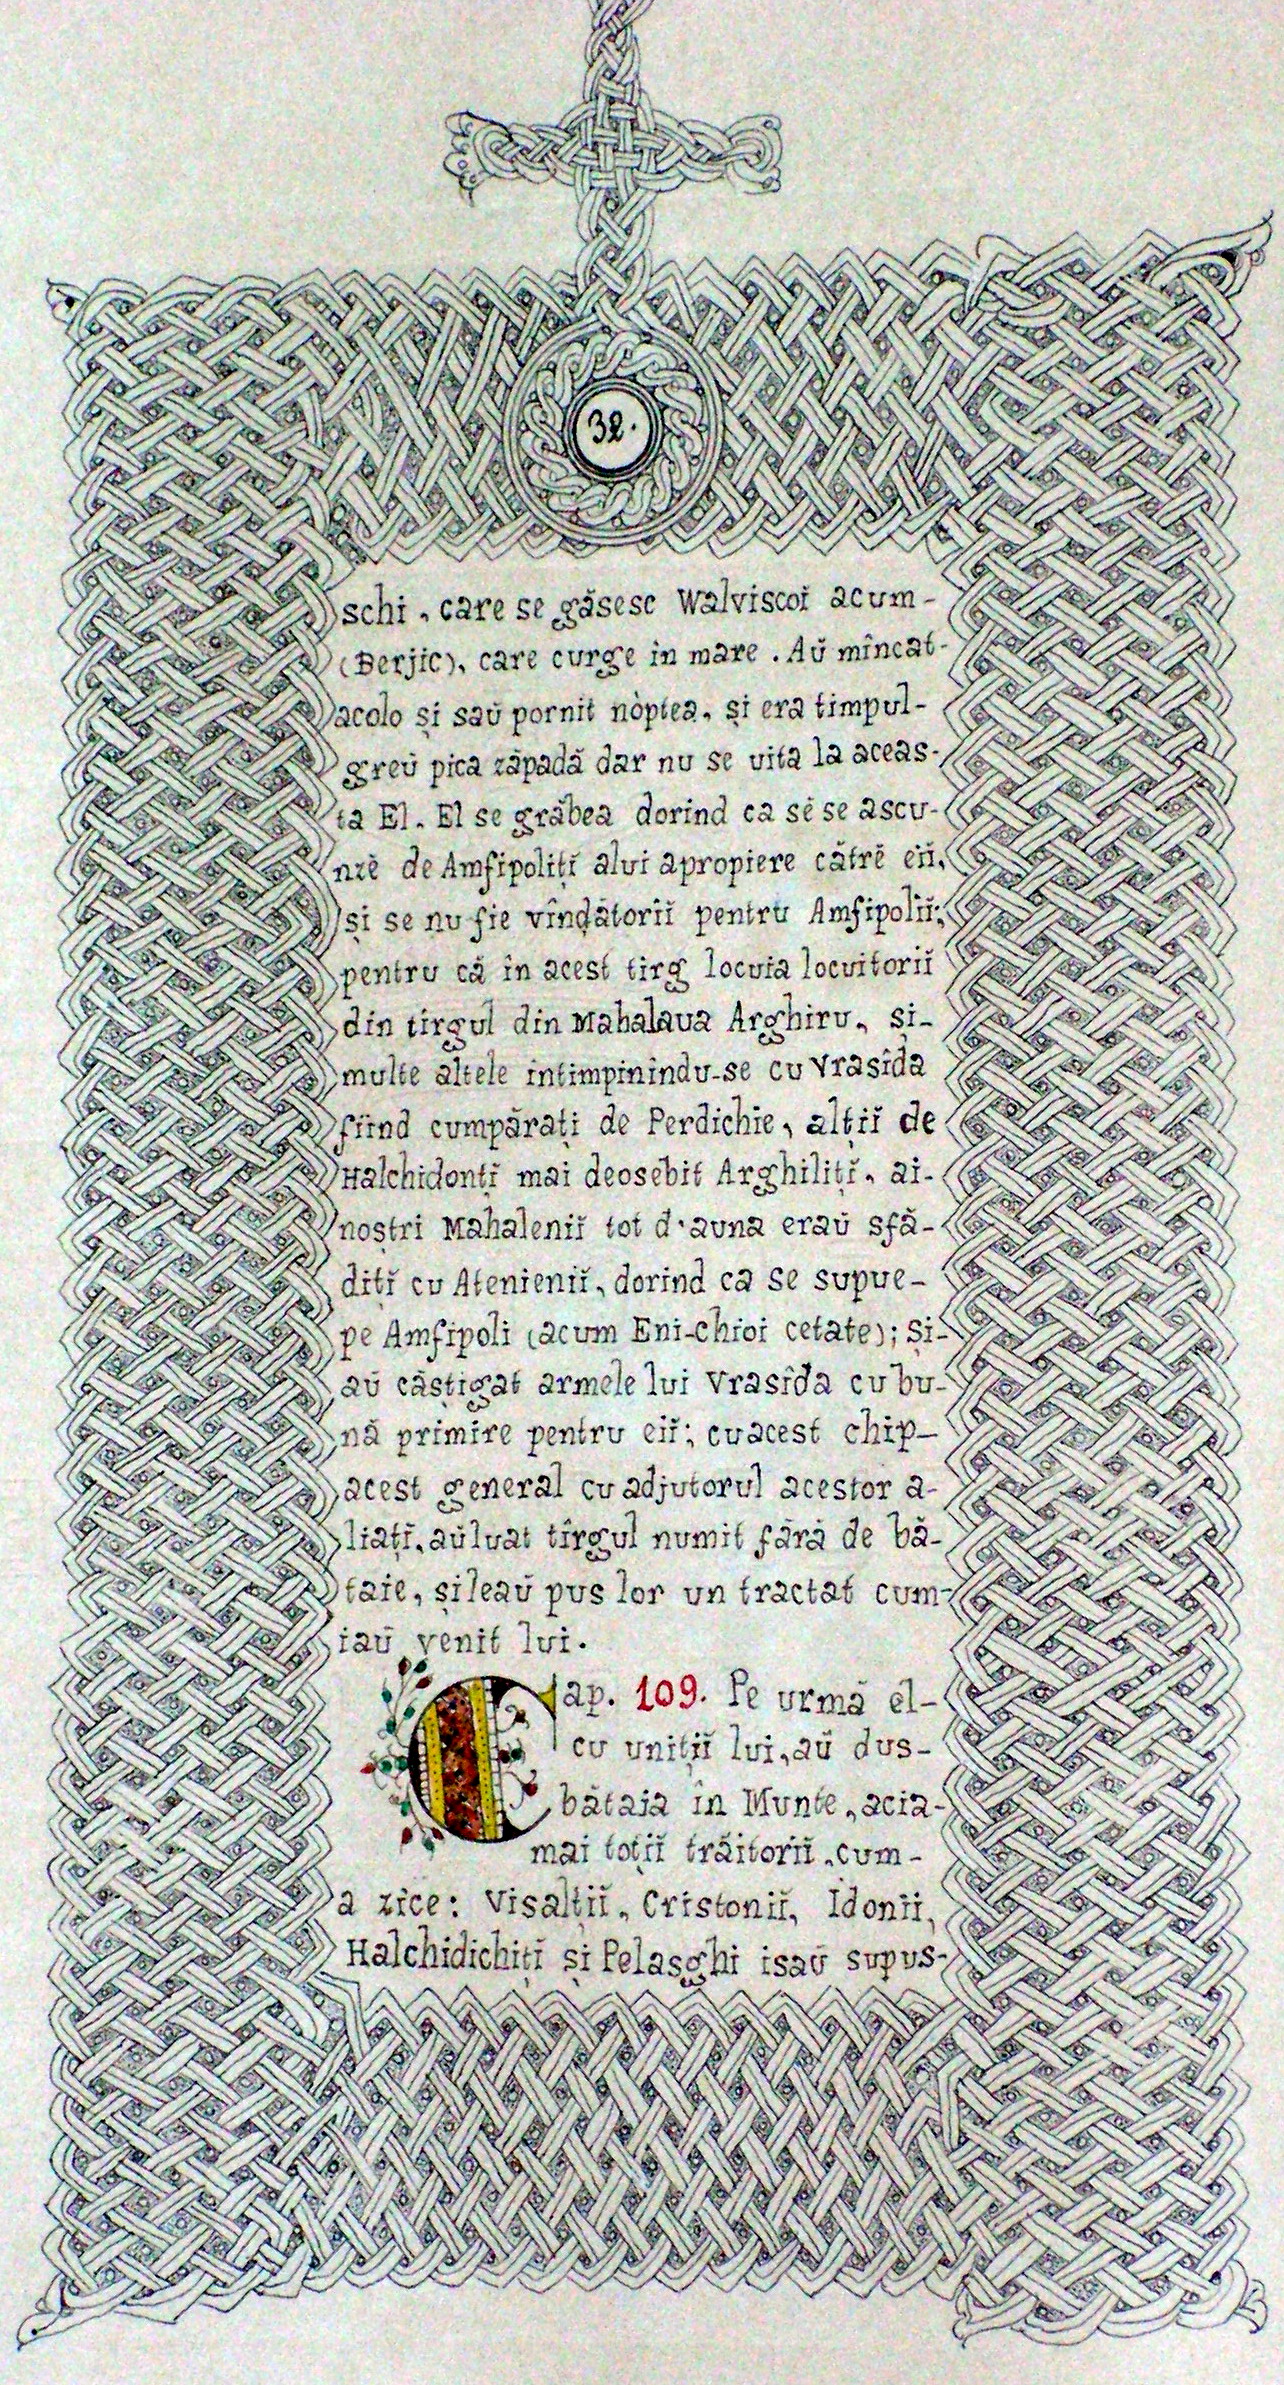 32.
schi, care se găsesc Walviscoĭ acum-
(Berjic), care curge in mare. Aŭ mîncat-
acolo și saŭ pornit nòptea, și era timpul-
greŭ pica zăpadă dar nu se uita la aceas-
ta El. El se grăbea dorind ca sĕ se ascu-
nzĕ de Amfipolițĭ alui apropiere cătrĕ eiĭ,
și se nu fie vîndătoriĭ pentru Amfipoliĭ;
pentru că în acest tirg locuia locuitoriĭ
din tîrgul din Mahalaua Arghiru, și-
multe altele intimpinîndu-se cu Vrasîda
fiind cumpărați de Perdichie, alțiĭ de
Halchidonțĭ mai deosebit Arghilițĭ, ai-
noștri Mahaleniĭ tot d'auna eraŭ sfă-
dițĭ cu Atenieniĭ, dorind ca se supue-
pe Amfipoli (acum Eni-chioi cetate); Și-
aŭ căștigat armele lui Vrasîda cu bu-
nă primire pentru eiĭ; cu acest chip-
acest general cu adjutorul acestor a-
liațĭ, aŭ luat tîrgul numit fără de bă-
taie, și leaŭ pus lor un tractat cum-
iaŭ venit lui.
Cap. 109. Pe urmă el-
cu unițiĭ lui, aŭ dus-
bătaia în Munte, acia-
mai toțiĭ trăitoriĭ, cum-
a zice: Visalțiĭ, Cristoniĭ, Idoniĭ,
Halchidichițĭ și Pelasghi isaŭ supus-